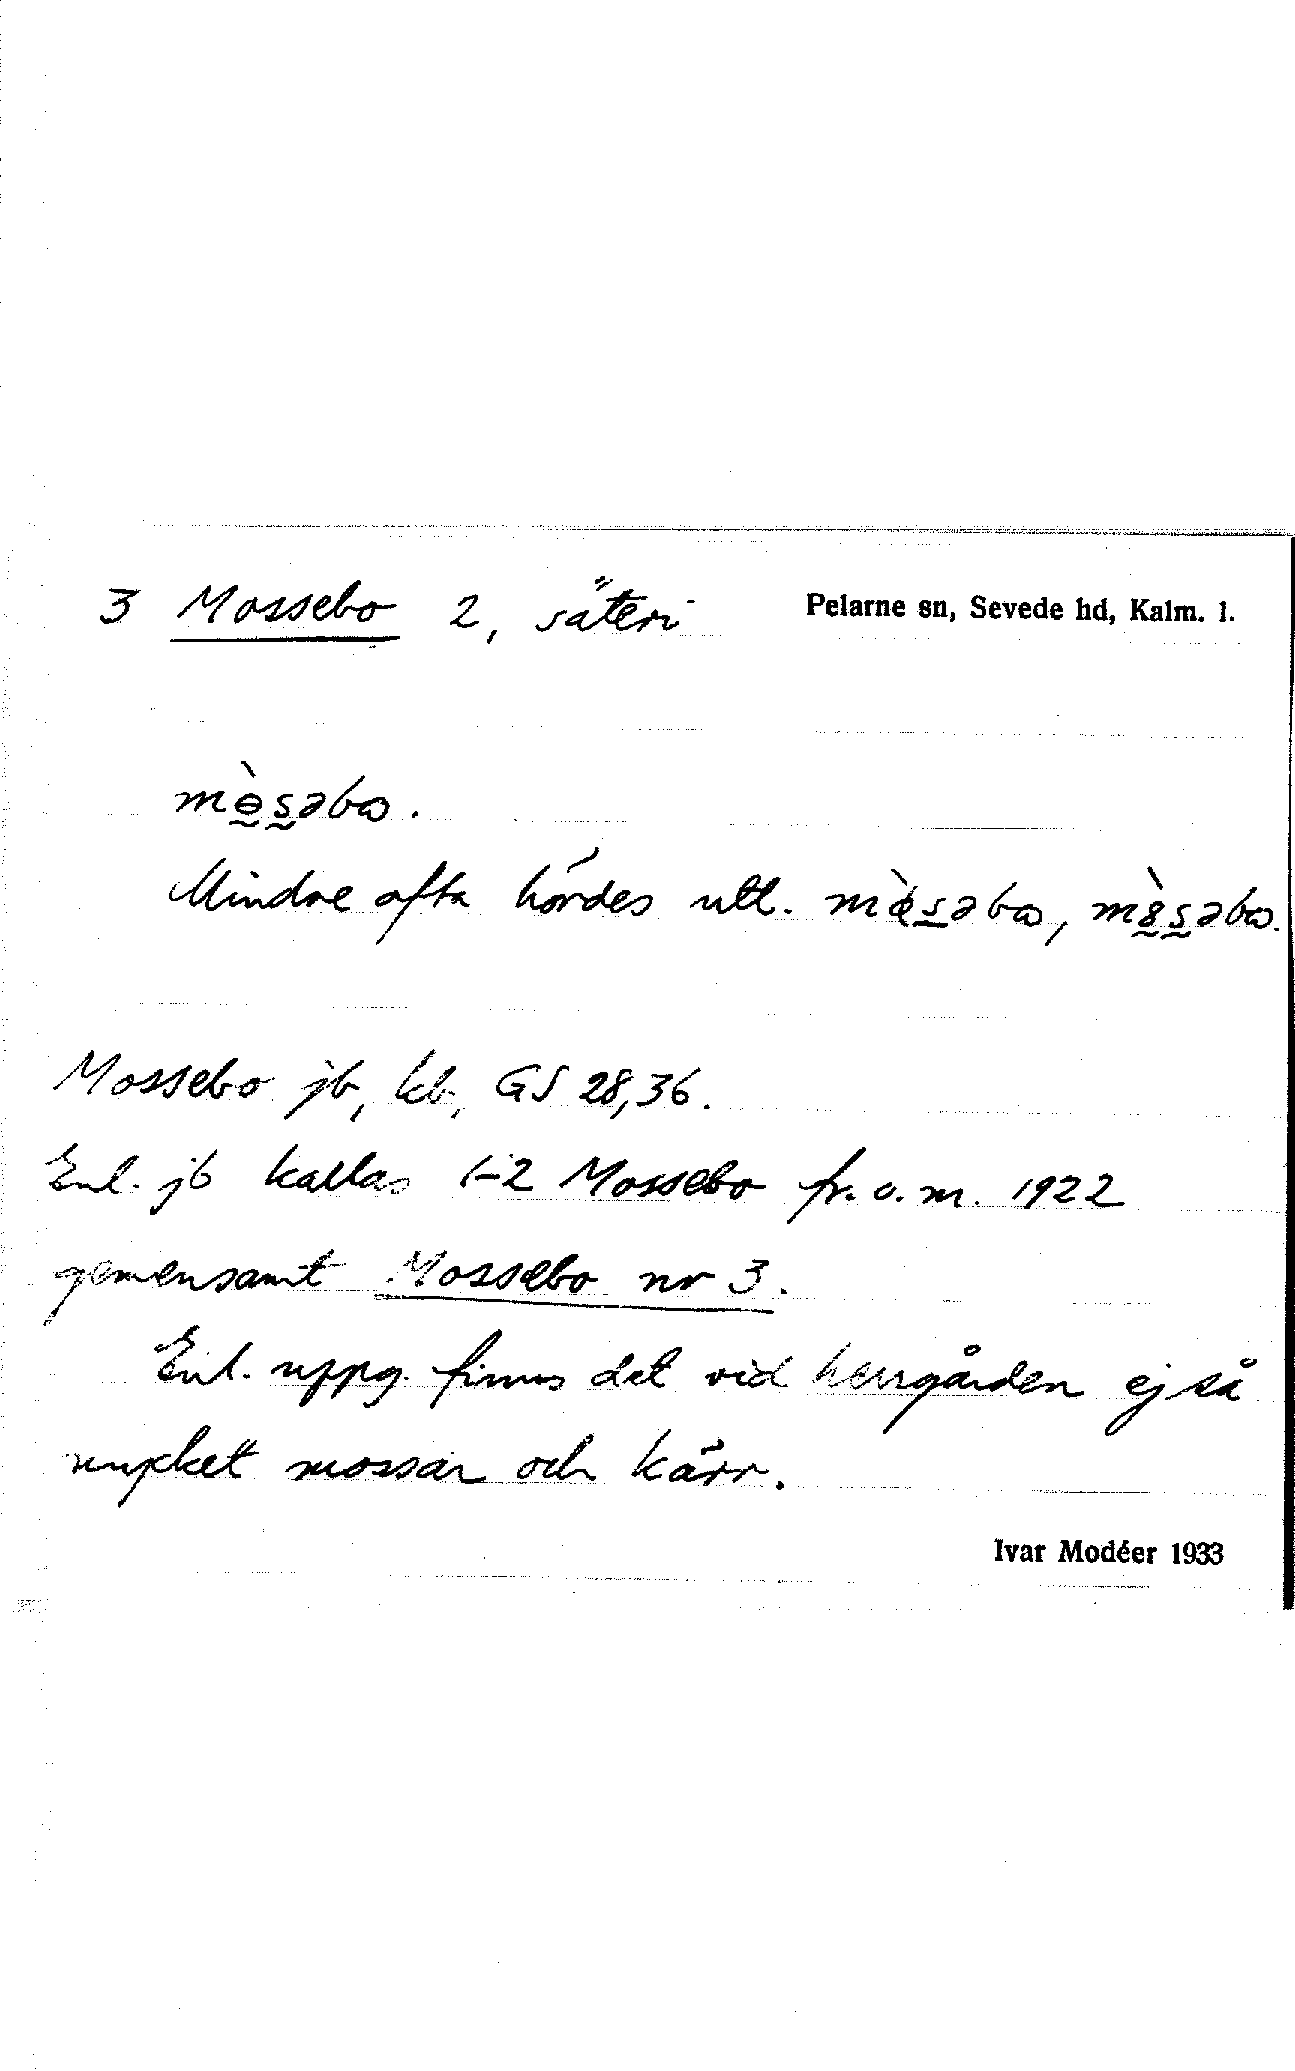 3 Mossebo 2, säteri Pelarne sn, Sevede hd, Kalm. l.
mɵ̀səbɷ.
Mindre ofta hördes utt. mɵ̀səbɷ, m8̀səbɷ.
Mossebo jb, kb, GS 28,36.
Enl. jb kallas 1-2 Mossebo fr.o.m. 1922
gemensamt Mossebo nr 3.
Enl. uppg. finns det vid herrgården ej så
mycket mossar och kärr.
Ivar Modéer 1933